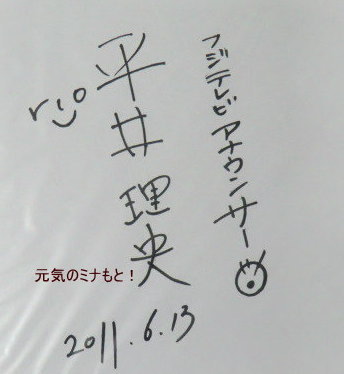 フジテレビアナウンサー
平井理央
rio
元気のミナもと！
2011.6.13